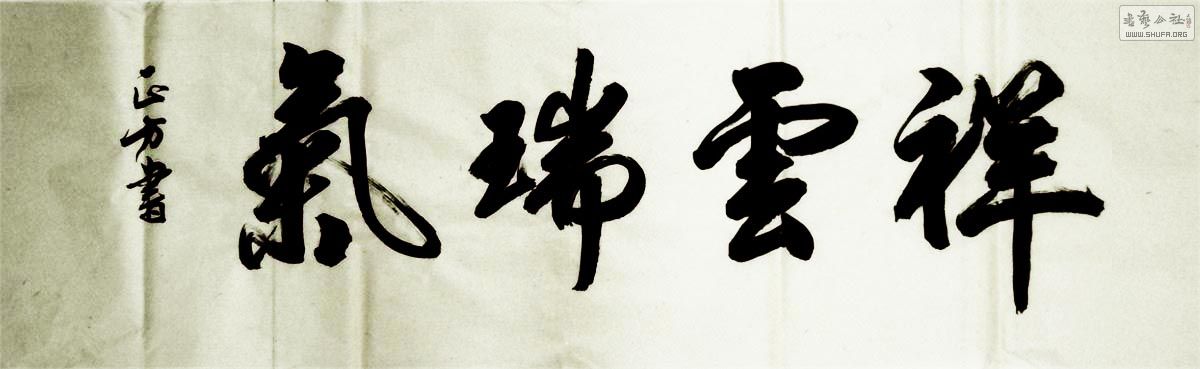 祥雲瑞氣
正方書
书艺公社
WWW.SHUFA.ORG